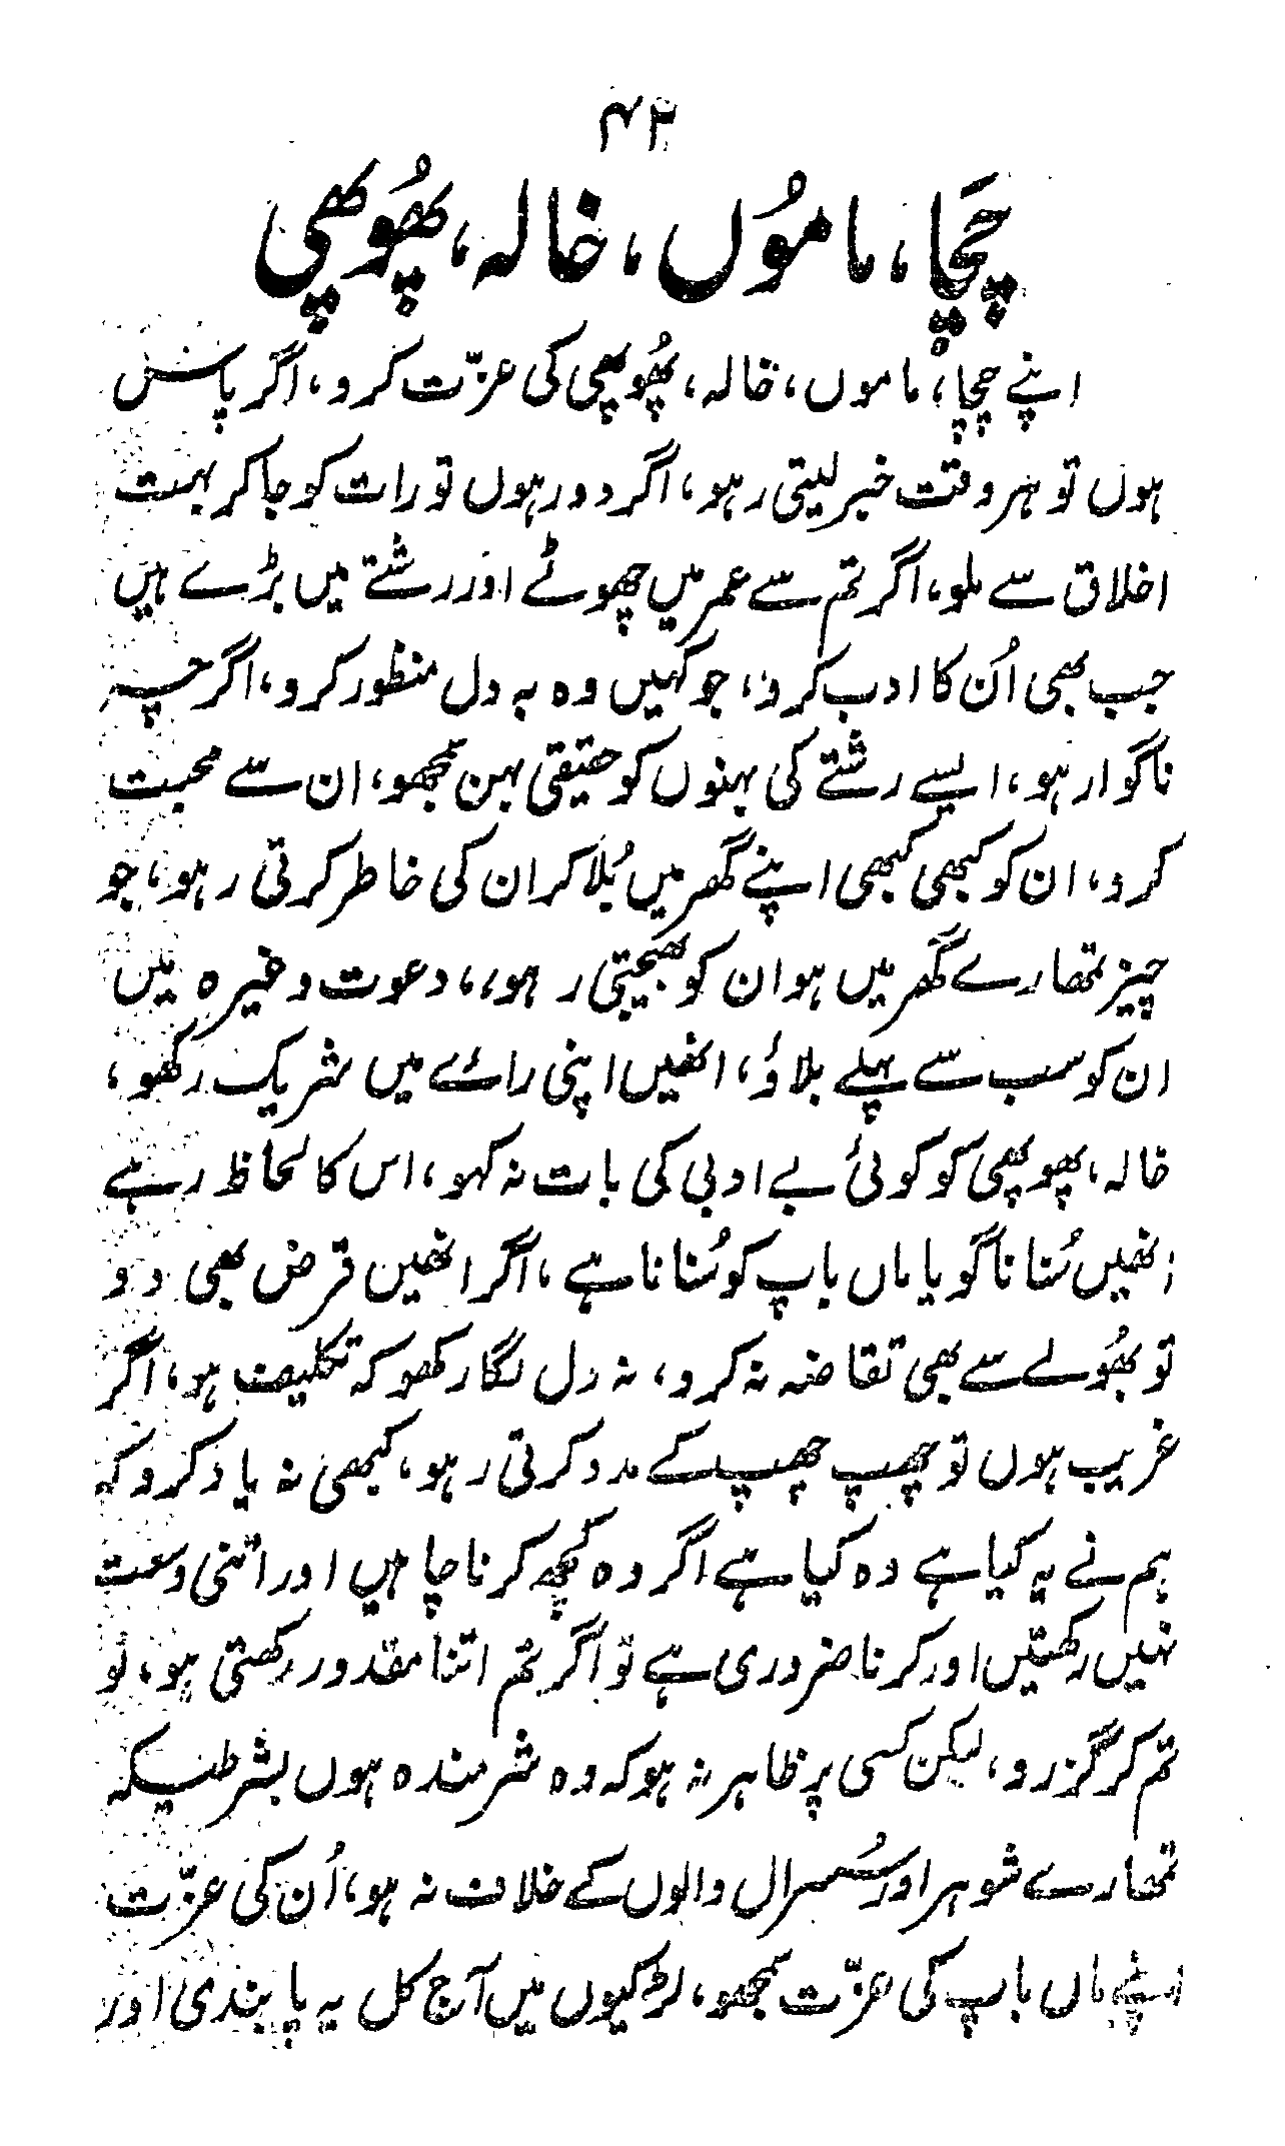 ۴۲
چَچا، ماموُں، خالہ، پھُوپھی
اپنے چچا، ماموں، خالہ، پھُوپھی کی عزّت کرو، اگر پاس
ہوں تو ہر وقت خبر لیتی رہو، اگر دور ہوں تو رات کو جا کر بہت
اخلاق سے ملو، اگر تم سے عمر میں چھوٹے اور رشتے میں بڑے ہیں
جب بھی اُن کا ادب کرو، جو کہیں وہ بہ دل منظور کرو، اگرچہ
ناگوار ہو، ایسے رشتے کی بہنوں کو حقیقی بہن سمجھو، ان سے محبت
کرو، ان کو کبھی کبھی اپنے گھر میں بُلا کر ان کی خاطر کرتی رہو، جو
چیز تمھارے گھر میں ہو ان کو بھیجتی رہو،، دعوت وغیرہ میں
ان کو سب سے پہلے بلاؤ، انھیں اپنی رائے میں شریک رکھو،
خالہ، پھوپھی کو کوئی بے ادبی کی بات نہ کہو، اس کا لحاظ رہے
انھیں سُنانا گویا ماں باپ کو سُنانا ہے، اگر انھیں قرض بھی دو
تو بھُولے سے بھی تقاضہ نہ کرو، نہ دل لگا رکھو کہ تکلیف ہو، اگر
غریب ہوں تو چھپ چھپ کے مدد کرتی رہو، کبھی نہ یاد کرو کہ
ہم نے یہ کیا ہے وہ کیا ہے اگر وہ کچھ کرنا چاہیں اور اتنی وسعت
نہیں رکھتیں اور کرنا ضروری ہے تو اگر تم اتنا مقدور رکھتی ہو، تو
تم کر گزرو، لیکن کسی پر ظاہر نہ ہو کہ وہ شرمندہ ہوں بشرطیکہ
تمھارے شوہر اور سُسرال والوں کے خلاف نہ ہو، اُن کی عزّت
اپنے ماں باپ کی عزّت سمجھو، لڑکیوں میں آج کل یہ پابندی اور